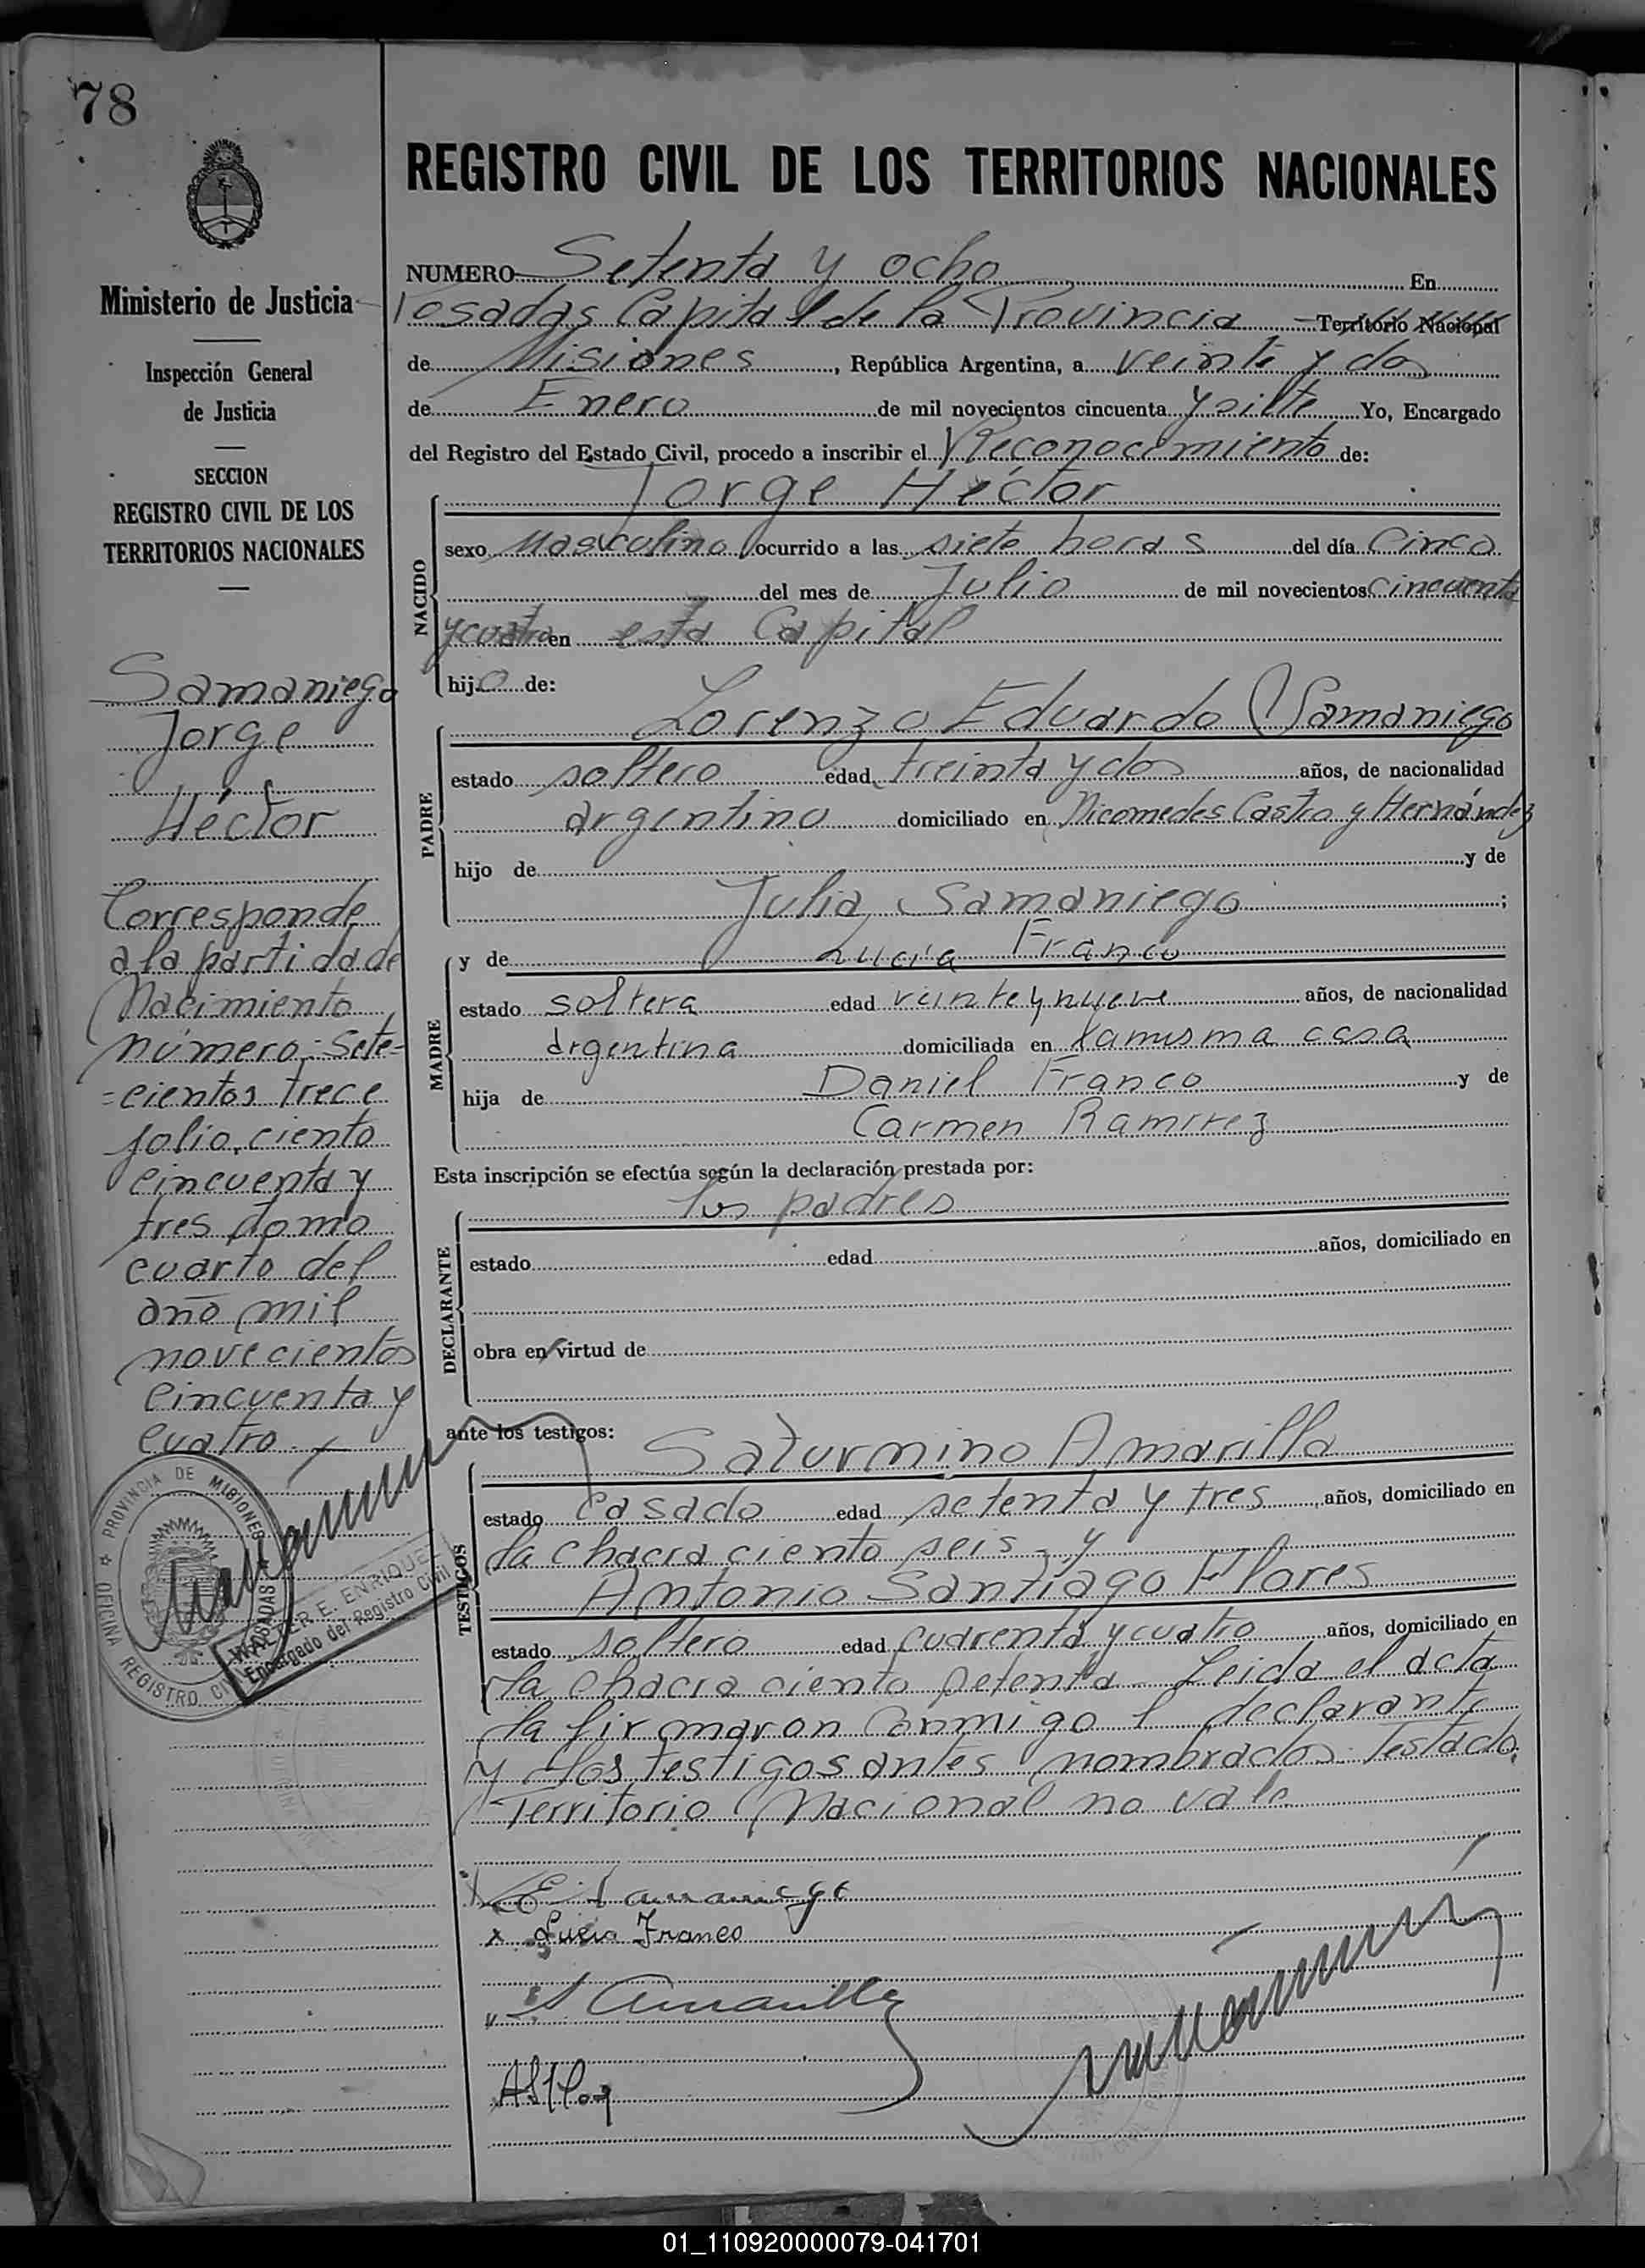 78
Ministerio de Justicia
Inspección General
de Justicia
SECCION
REGISTRO CIVIL DE LOS
TERRITORIOS NACIONALES
Samaniego
Jorge
Héctor
Corresponde
a la partida de
Nacimiento
número: Sete-
=cientos trece
folio, ciento
cincuenta y
tres tomo
cuarto del
año mil
novecientos
cincuenta y
cuatro.
PROVINCIA DE MISIONES
OFICINA REGISTRO
POSADAS
WALTER E. ENRIQUE
Encargado del Registro Civil
REGISTRO CIVIL DE LOS TERRITORIOS NACIONALES
NUMERO Setenta y ocho En
Posadas Capital de la Provincia Territorio Nacional
de Misiones, República Argentina, a veinte y dos
de Enero de mil novecientos cincuenta y siete Yo, Encargado
del Registro del Estado Civil, procedo a inscribir el Reconocimiento de:
Jorge Héctor
NACIDO
sexo Masculino ocurrido a las siete horas del día Cinco
del mes de Julio de mil novecientos cincuenta
y cuatro en esta Capital
hijo de:
Lorenzo Eduardo Samaniego
PADRE
estado soltero edad treinta y dos años, de nacionalidad
argentino domiciliado en Nicomedes Castro y Hernández
hijo de y de
Julia Samaniego ;
y de Lucía Franco
MADRE
estado soltera edad veinte y nueve años, de nacionalidad
argentina domiciliada en la misma casa
hija de Daniel Franco y de
Carmen Ramirez
Esta inscripción se efectúa según la declaración prestada por:
los padres
DECLARANTE
estado edad años, domiciliado en
obra en virtud de
ante los testigos:
Saturnino Amarilla
TESTIGOS
estado Casado edad setenta y tres años, domiciliado en
la chacra ciento seis - y
Antonio Santiago Flores
estado soltero edad cuarenta y cuatro años, domiciliado en
la chacra ciento setenta - Leida el acta
la firmaron conmigo l declarante
y los testigos antes nombrados. Testado:
Territorio Nacional no vale
L E Samaniego
x Lucia Franco
S Amarilla
01_110920000079-041701